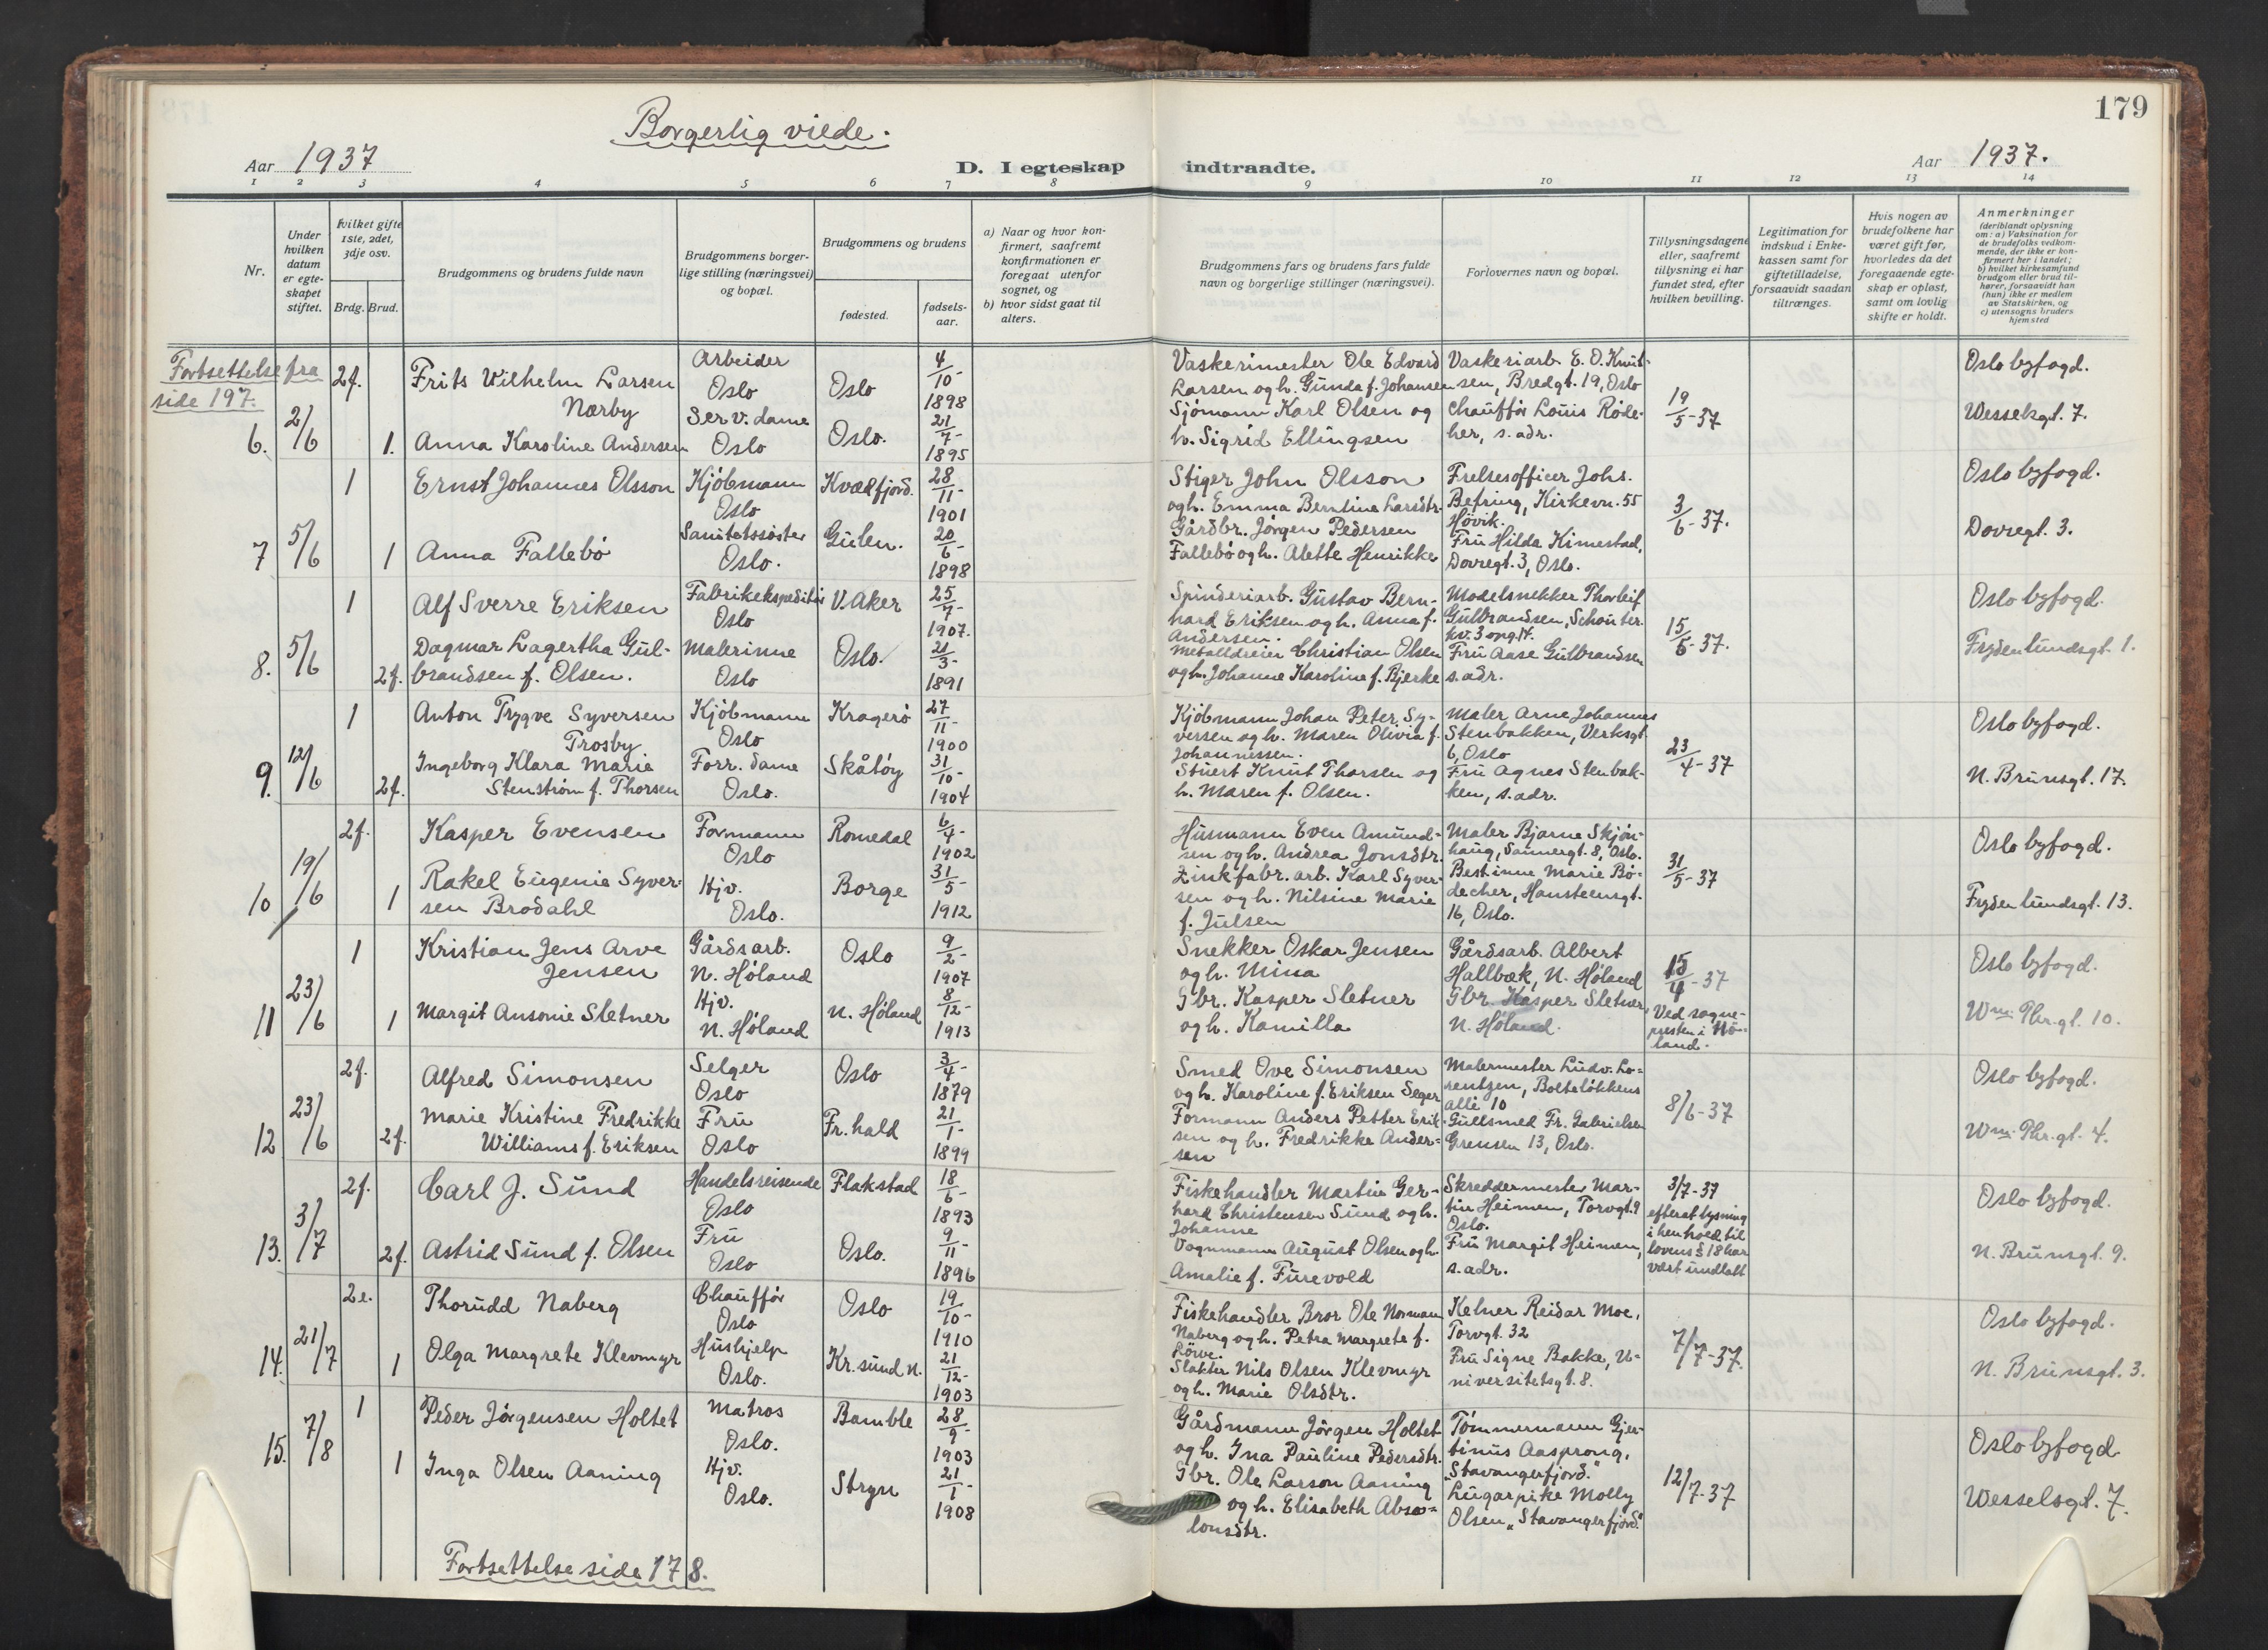 179
Borgerlig viede.
Aar 1937
D. I egteskap indtraadte.
Aar 1937.
1 2 3 4 5 6 7 8 9 10 11 12 13 14
Nr.
Under hvilken datum er egteskapet stiftet.
Hvilket gifte 1ste, 2det, 3dje osv.
Brdg. Brud.
Brudgommens og brudens fulde navn
Brudgommens borgerlige stilling (næringsvei) og bopæl.
Brudgommens og brudens
fødested.
fødselsaar.
a) Naar og hvor konfirmert, saafremt konfirmationen er foregaat utenfor sognet, og
b) hvor sidst gaat til alters.
Brudgommens fars og brudens fars fulde navn og borgerlige stillinger (næringsvei).
Forlovernes navn og bopæl.
Tillysningsdagene eller, saafremt tillysning ei har fundet sted, efter hvilken bevilling.
Legitimation for indskud i Enkekassen samt for giftetilladelse, forsaavidt saadan tiltrænges.
Hvis nogen av brudefolkene har været gift før, hvorledes da det foregaaende egteskap er opløst, samt om lovlig skifte er holdt.
Anmerkninger (deriblandt oplysning om: a) Vaksination for de brudefolks vedkommende, der ikke er konfirmert her i landet; b) hvilket kirkesamfund brudgom eller brud tilhører, forsaavidt han (hun) ikke er medlem av Statskirken, og c) utensogns bruders hjemsted
Fortsettelse fra side 197.
6. 2/6
2f. Frits Wilhelm Larsen Nærby
Arbeider Oslo
Oslo
4/10-1898
Vaskerimester Ole Edvard Larsen og h. Gunda f. Johansen
Vaskeriarb. E. O. Knutsen, Bredgt. 19, Oslo
19/5-37
Oslo byfogd.
1. Anna Karoline Andersen
Serv. dame Oslo
Oslo.
21/7-1895
Sjömann Karl Olsen og h. Sigrid Ellingsen
Chaufför Louis Rödeher, s. adr.
Wesselsgt. 7.
7 5/6
1 Ernst Johannes Olsson
Kjöbmann Oslo
Kvædfjord.
28/11-1901
Stiger John Olsson og h. Emma Berntine Larsdtr.
Frelsesofficer Johs. Befring, Kirkevn. 55 Hövik.
3/6-37.
Oslo byfogd.
1 Anna Fallebö
Sanitetssöster Oslo.
Gulen.
20/6-1898
Gårdbr. Jörgen Pedersen Fallebö og h. Alette Henrikke
Fru Hilda Kimestad, Dovregt. 3, Oslo.
Dovregt. 3.
8. 5/6
1 Alf Sverre Eriksen
Fabrikekspeditör Oslo
V. Aker
25/7-1907.
Spinderiarb. Gustav Bernhard Eriksen og h. Anna f. Andersen.
Modelsnekker Thorleif Gulbrandsen, Schouter. kv. 3 opg. 14.
15/5-37.
Oslo byfogd.
2f. Dagmar Lagertha Gulbrandsen f. Olsen.
Malerinne Oslo
Oslo.
21/3-1891
Metalldreier Christian Olsen og h. Johanne Karoline f. Bjerke
Fru Aase Gulbrandsen s. adr.
Frydenlundsgt. 1.
9. 12/6
1 Anton Trygve Syversen Trosby
Kjöbmann Oslo
Kragerö
27/11-1900
Kjöbmann Johan Peter Syversen og h. Maren Olivia f. Johannessen.
Maler Arne Johannes Stenbakken, Verksgt. 6, Oslo
23/4-37
Oslo byfogd.
2f. Ingeborg Klara Marie Stenström f. Thorsen
Forr. dame Oslo.
Skåtöy
31/10-1904
Stuert Knut Thorsen og h. Maren f. Olsen.
Fru Agnes Stenbakken, s. adr.
N. Brunsgt. 17.
10 19/6
2f. Kasper Evensen
Formann Oslo
Romedal
6/4-1902
Husmann Even Amundsen og h. Andrea Jonsdtr.
Maler Bjarne Skjönhaug, Sannergt. 8, Oslo.
31/5-37
Oslo byfogd.
1 Rakel Eugenie Syversen Brodahl
Hjv. Oslo.
Borge
31/5-1912
Zinkfabr. arb. Karl Syversen og h. Nilsine Marie f. Julsen
Bestinne Marie Bödecher, Hansteensgt. 16, Oslo.
Frydenlundsgt. 13.
11 23/6
1 Kristian Jens Arve Jensen
Gårdsarb. N. Höland
Oslo
9/2-1907
Snekker Oskar Jensen og h. Mina
Gårdsarb. Albert Hallbæk, N. Höland
15/4-37
Oslo byfogd.
1 Margit Ansonie Sletner
Hjv. N. Höland
N. Höland
8/12-1913
Gbr. Kasper Sletner og h. Kamilla
Gbr. Kasper Sletner, N. Höland.
Ved sognepresten i Höland.
Wm. Thr. gt. 10.
12 23/6
2f. Alfred Simonsen
Selger Oslo
Oslo
3/4-1879
Smed Ove Simonsen og h. Karoline f. Eriksen Seger
Malermester Ludv. Lorentzen, Bolteløkkens alle 10
8/6-37
Oslo byfogd.
2f. Marie Kristine Fredrikke Williams f. Eriksen
Fru Oslo
Fr.hald
21/1-1899
Formann Anders Petter Eriksen og h. Fredrikke Andersen
Gullsmed Fr. Gabrielsen Grensen 13, Oslo.
Wm. Thr. gt. 4.
13. 3/7
2f. Carl J. Sund
Handelsreisende Oslo
Flakstad
18/6-1893
Fiskehandler Martin Gerhard Christensen Sund og h. Johanne
Skreddermester Martin Heimen, Torvgt. 9 Oslo.
3/7-37 efterat lysning i henhold til lovens § 18 har vært undlatt
Oslo byfogd.
2f. Astrid Sund f. Olsen
Fru Oslo
Oslo.
9/11-1896
Vognmann August Olsen og h. Amalie f. Furevold
Fru Margit Heimen, s. adr.
N. Brunsgt. 9.
14. 21/7
2e. Thorudd Naberg
Chaufför Oslo
Oslo
19/10-1910
Fiskehandler Bror Ole Normann Naberg og h. Petra Margrete f. Löwe.
Kelner Reidar Moe, Torvgt. 32
7/7-37.
Oslo byfogd.
1 Olga Margrete Klevmyr
Hushjelp Oslo.
Kr.sund N.
21/12-1903
Slakter Nils Olsen Klevmyr og h. Marie Olsdtr.
Fru Signe Bakke, Universitetsgt. 8.
N. Brunsgt. 3.
15. 7/8
1 Peder Jörgensen Holtet
Matros Oslo.
Bamble
28/9-1903
Gårdmann Jörgen Holtet og h. Ina Pauline Pedersdtr.
Tömmermann Gjertinus Aasprong, "Stavangerfjord."
12/7-37
Oslo byfogd
1 Inga Olsen Aaning
Hjv. Oslo.
Stryn
21/1-1908
Gbr. Ole Larson Aaning og h. Elisabeth Absalonsdtr.
Lugarpike Molly Olsen, "Stavangerfjord."
Wesselsgt. 7.
Fortsettelse side 178.